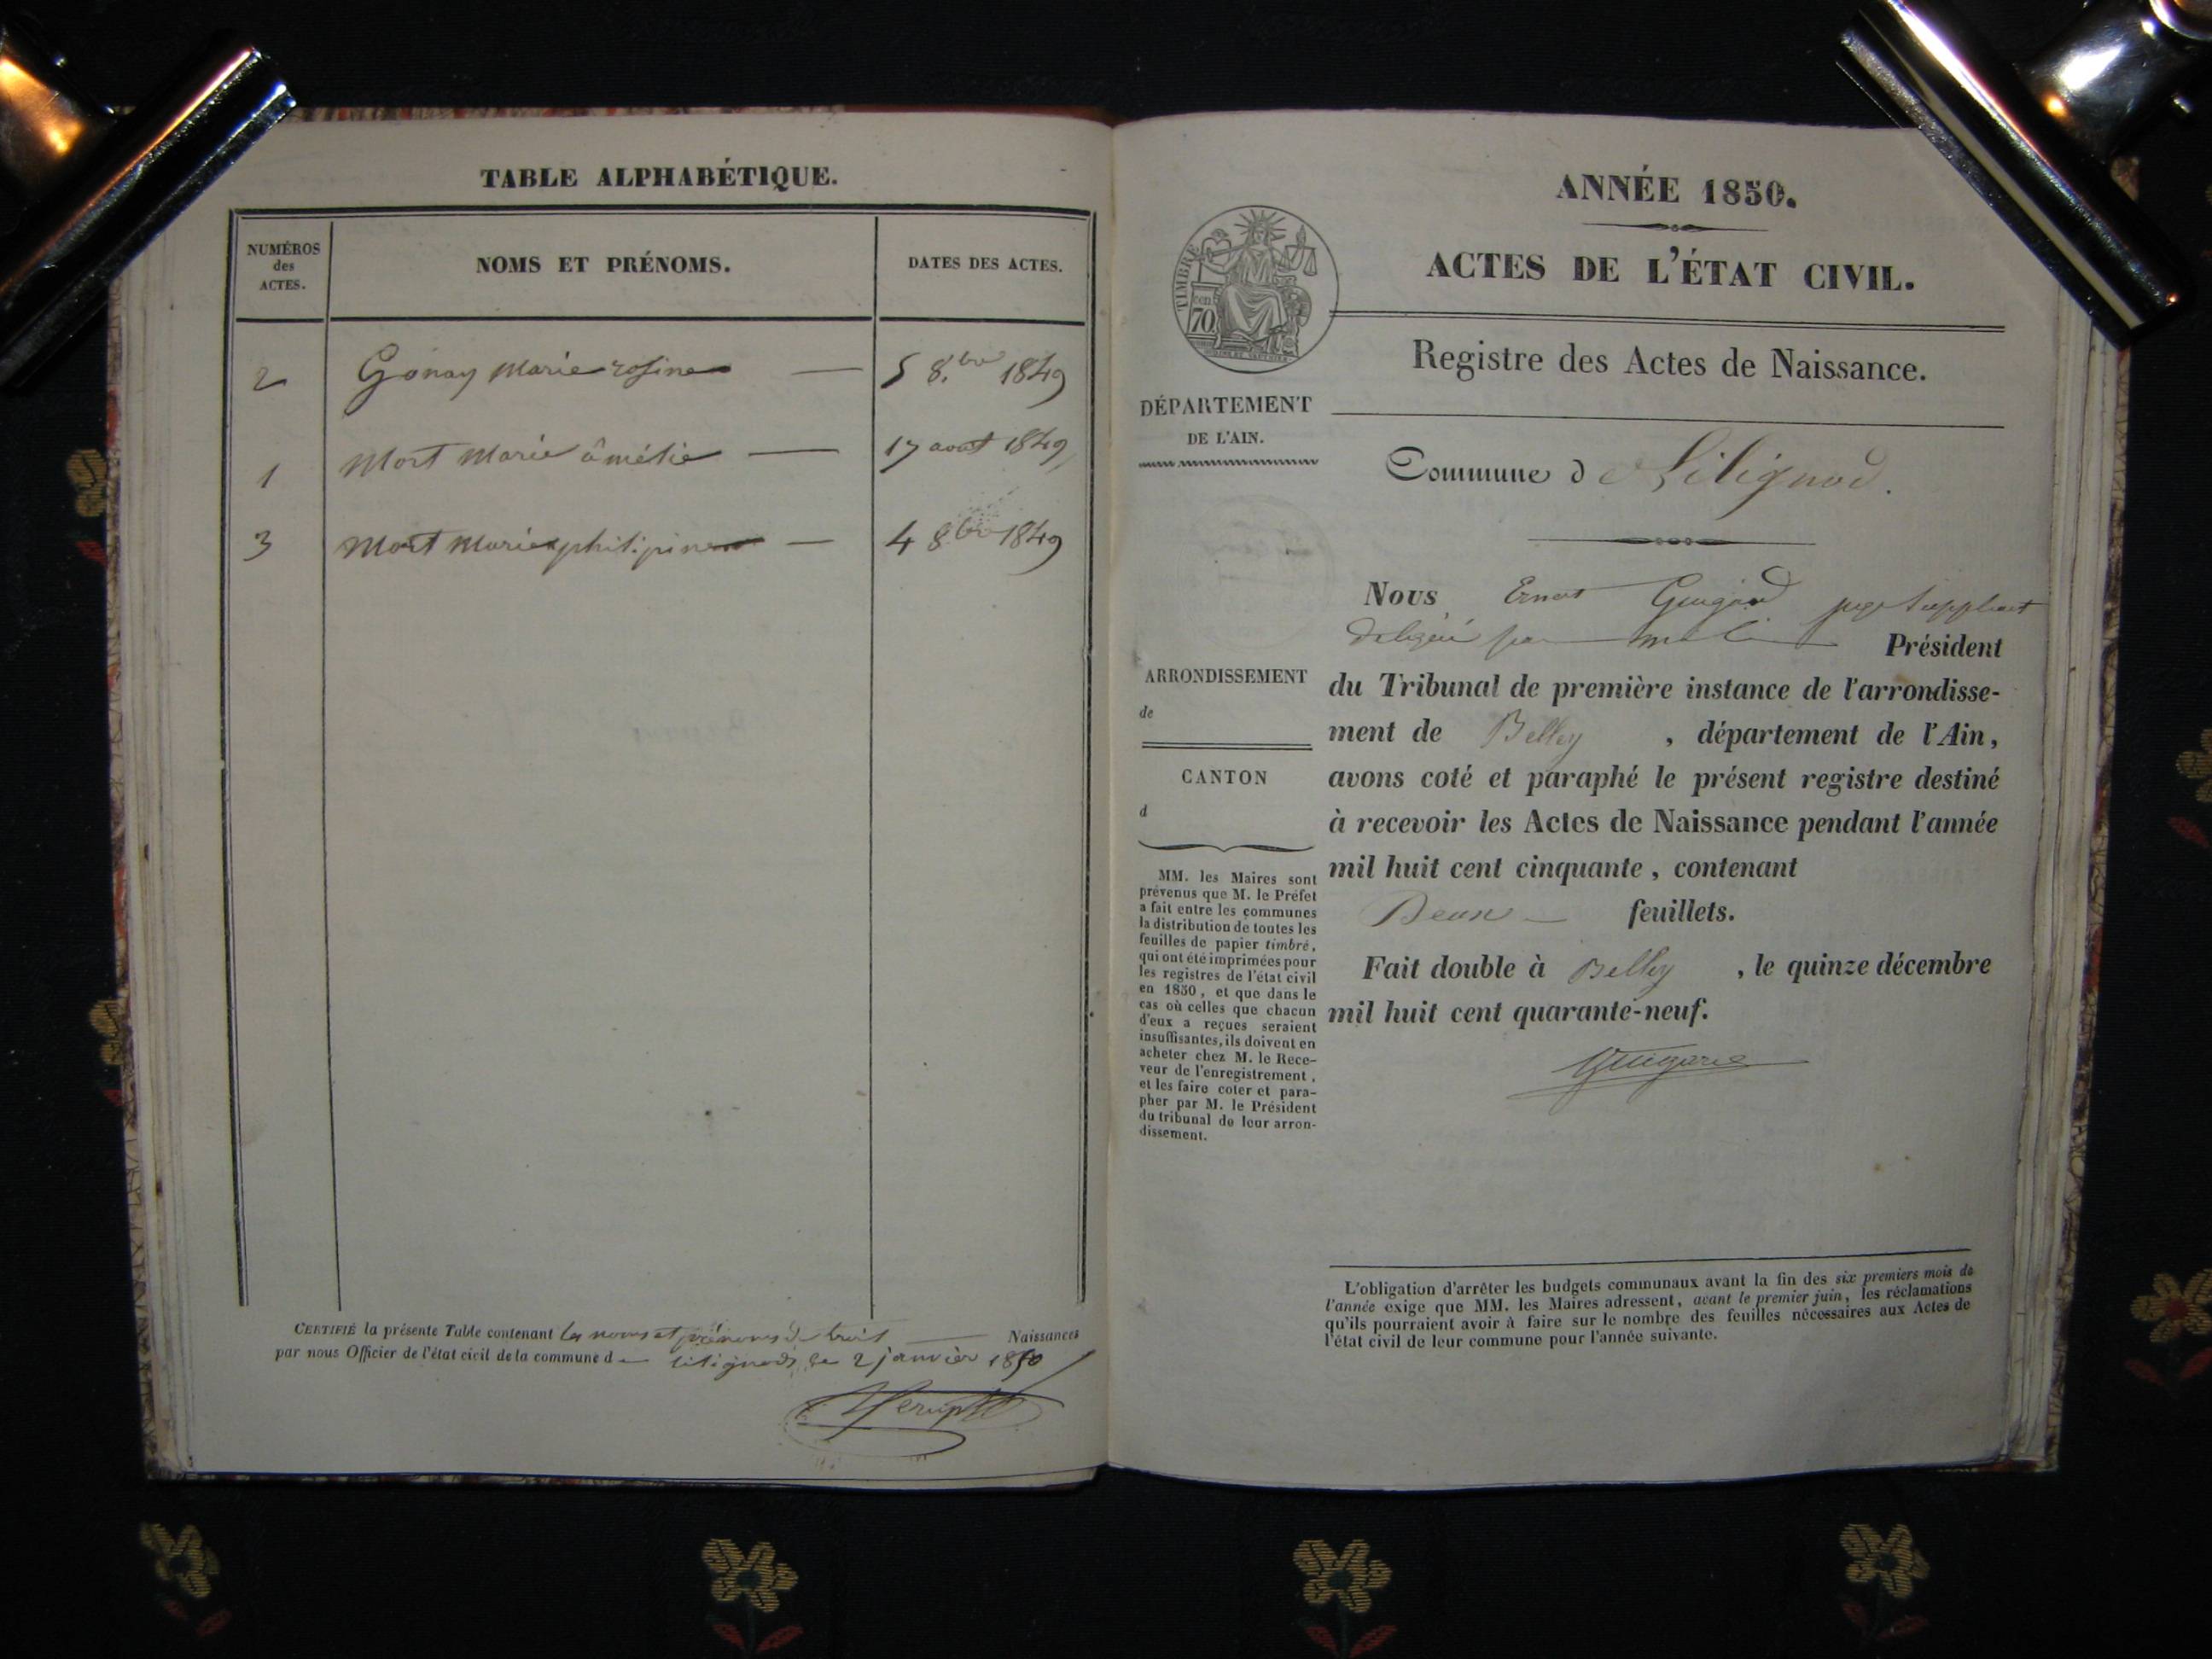 TABLE ALPHABÉTIQUE.
NUMÉROS
des
ACTES.
NOMS ET PRÉNOMS.
DATES DES ACTES.
2 Gonay Marie rosine — 5 8.bre 1849
1 Mort Marie âmélie — 17 aout 1849
3 Mort Marie philipine — 4 8bre 1849
CERTIFIÉ la présente Table contenant les noms et prénoms de trois Naissances
par nous Officier de l'état civil de la commune de Lilignod, ce 2 janvier 1850
ANNÉE 1850.
ACTES DE L'ÉTAT CIVIL.
TIMBRE
70
Registre des Actes de Naissance.
DÉPARTEMENT
DE L'AIN.
Commune de Lilignod.
ARRONDISSEMENT
de
CANTON
d
MM. les Maires sont
prévenus que M. le Préfet
a fait entre les communes
la distribution de toutes les
feuilles de papier timbré,
qui ont été imprimées pour
les registres de l'état civil
en 1850, et que dans le
cas où celles que chacun
d'eux a reçues seraient
insuffisantes, ils doivent en
acheter chez M. le Rece-
veur de l'enregistrement,
et les faire coter et para-
pher par M. le Président
du tribunal de leur arron-
dissement.
Nous Ernest juge Suppléant
délégué par Président
du Tribunal de première instance de l'arrondisse-
ment de Belley, département de l'Ain,
avons coté et paraphé le présent registre destiné
à recevoir les Actes de Naissance pendant l'année
mil huit cent cinquante, contenant
Deux feuillets.
Fait double à Belley, le quinze décembre
mil huit cent quarante-neuf.
L'obligation d'arrêter les budgets communaux avant la fin des six premiers mois de
l'année exige que MM. les Maires adressent, avant le premier juin, les réclamations
qu'ils pourraient avoir à faire sur le nombre des feuilles nécessaires aux Actes de
l'état civil de leur commune pour l'année suivante.